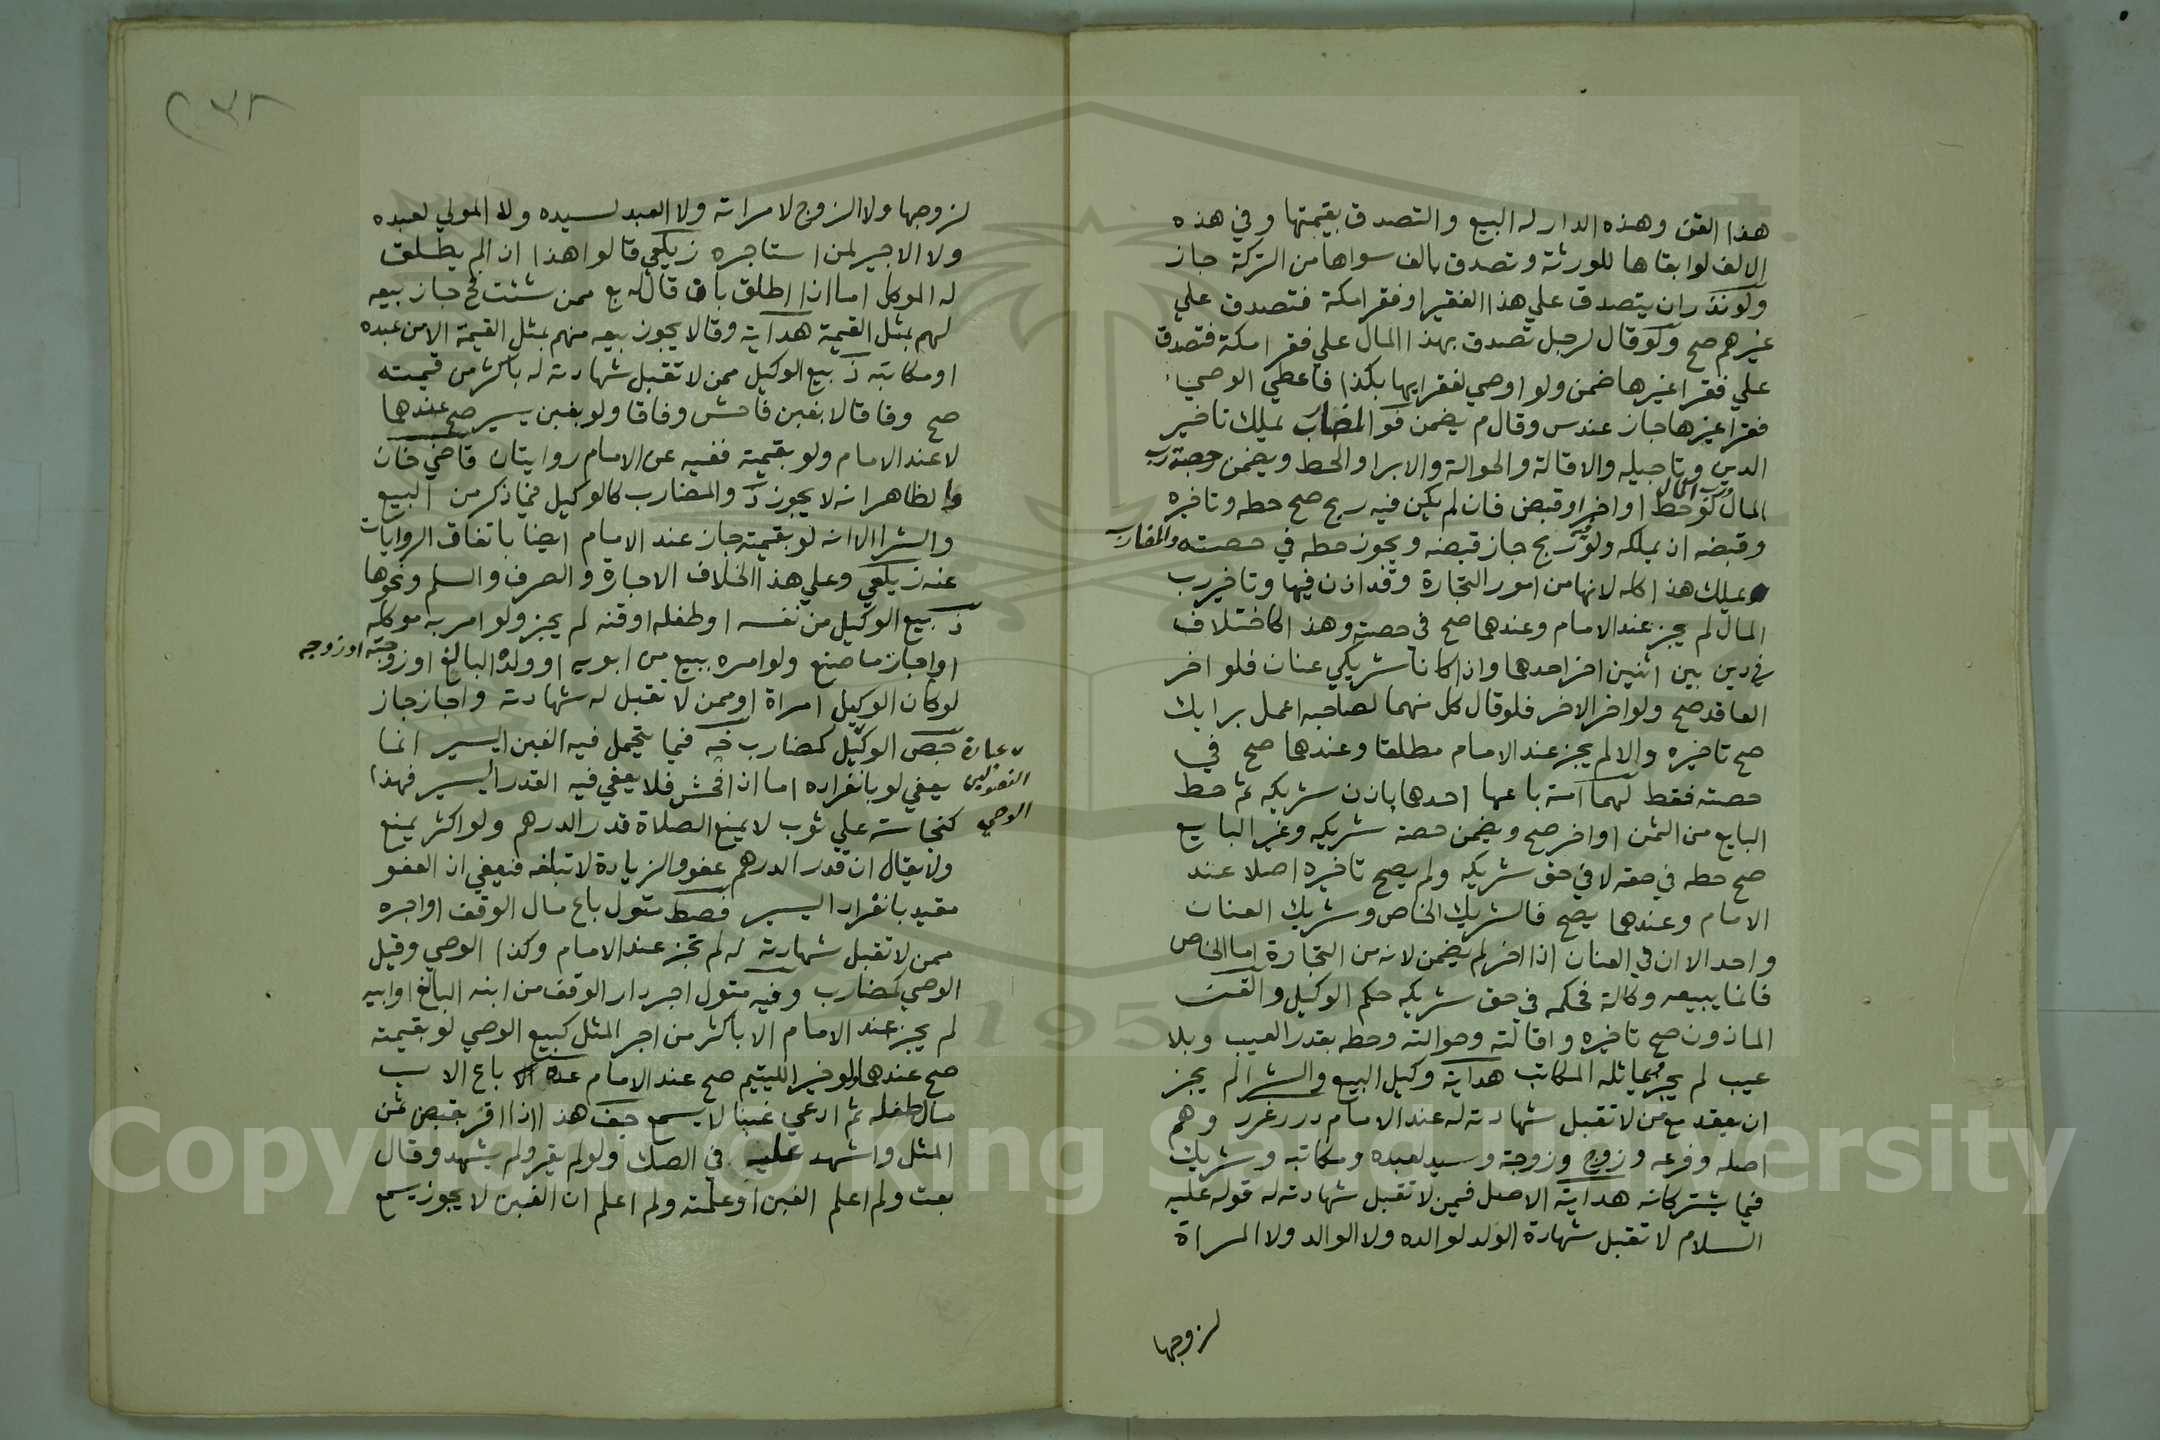 هذا القن وهذه الدار له البيع والتصدق بقيمتها وفي هذه
الالف لو ابقاها للورثة وتصدق بالف سواها من التركة جاز
ولو نذر ان يتصدق علي هذا الفقير او فقرا مكة فتصدق علي
غيرهم صح ولو قال لرجل تصدق بهذا المال علي فقرا مكة فتصدق
علي فقرا غيرها ضمن ولو اوصي لفقرايها بكذا فاعطي الوصي
فقرا غيرها جاز عند س وقال م يضمن فو المضارب يملك تاخير
الدين وتاجيله والاقالة والحوالة والابرا والحط ويضمن حصة رب
المال لو حط او اخر او قبض فان لم يكن فيه ربح صح حطه وتاخيره
رب المال
وقبضه ان يملكه ولو فيه ربح جاز قبضه ويجوز حطه في حصته والمضارب
يملك هذا كله لانها من امور التجارة وقد اذن فيها وتاخير رب
المال لم يجز عند الامام وعندهما صح في حصته وهذا كاختلاف
في دين بين اثنين اخر احدهما واذا كانا شريكي عنان فلو اخر
العاقد صح ولو اخر الاخر فلو قال كل منهما لصاحبه اعمل برايك
صح تاخيره والا لم يجز عند الامام مطلقا وعندهما صح في
حصته فقط لهما امة باعها احدهما باذن شريكه ثم حط
البايع من الثمن او اخر صح ويضمن حصة شريكه وغير البايع
صح حطه في حقه لا في حق شريكه ولم يصح تاخيره اصلا عند
الامام وعندهما يصح فالشريك الخاص وشريك العنان
واحد الا ان في العنان اذا اخر لم يضمن لانه من التجارة اما الخاص
فانما يبيعه وكالة فحكمه في حق شريكه حكم الوكيل والقن
الماذون صح تاخيره واقالته وحوالته وحطه بقدر العيب وبلا
عيب لم يجز يماثله المكاتب هداية وكيل البيع والشرا لم يجز
ان يعقد مع من لا تقبل شهادته له عند الامام درر غرر وهم
اصله وفرعه وزوج وزوجة وسيد لعبده ومكاتبه وشريك
فيما يشتركانه هداية الاصل فيمن لا تقبل شهادته له قوله عليه
السلام لا تقبل شهادة الولد لوالده ولا الوالد ولا المراة
لزوجها
٢٣٨
لزوجها ولا الزوج لامراته ولا العبد لسيده ولا المولي لعبده
ولا الاجير لمن استاجره زيلعي قالوا هذا ان لم يطلق
له الموكل اما اذا اطلق بان قال له بع ممن شئت فح جاز بيعه
لهم بمثل القيمة هداية وقالا يجوز بيعه منهم بمثل القيمة الا من عبده
او مكاتبه ذ بيع الوكيل ممن لا تقبل شهادته له باكثر من قيمته
صح وفاقا لا بغبن فاحش وفاقا ولو بغبن يسير صح عندهما
لا عند الامام ولو بقيمته ففيه عن الامام روايتان قاضي خان
والظاهر انه لا يجوز ذ والمضارب كالوكيل فيما ذكر من البيع
والشرا الا انه لو بقيمته جاز عند الامام ايضا باتفاق الروايات
عنه زيلعي وعلي هذا الخلاف الاجارة والصرف والسلم ونحوها
ذ بيع الوكيل من نفسه او طفله او قنه لم يجز ولو امر به موكله
او اجاز ما صنع ولو امره ببيع من ابويه او ولده البالغ او زوجته او زوجه
لو كان الوكيل امراة او ممن لا تقبل له شهادته واجاز جاز
عبارة
الفصولين
الوصي
جص الوكيل كمضارب خه فيما يتحمل فيه الغبن اليسير انما
يعفي لو بانفراده اما اذا فحش فلا يعفي فيه القدر اليسير فهذا
كنجاسة علي ثوب لا يمنع الصلاة قدر الدرهم ولو اكثر يمنع
ولا يقال ان قدر الدرهم عفو والزيادة لا تبلغه فيعفي اذ العفو
مقيد بانفراد اليسير فصط متول باع مال الوقف او اجره
ممن لا تقبل شهادته له لم تجز عند الامام وكذا الوصي وقيل
الوصي كمضارب وفيه متول اجر دار الوقف من ابنه البالغ او ابيه
لم يجز عند الامام الا باكثر من اجر المثل كبيع الوصي لو بقيمته
صح عندهما ولو خير لليتيم صح عند الامام عده باع الاب
مال طفله ثم ادعي غبنا لا يسمع جف هذا اذا اقر بقبض ثمن
المثل واشهد عليه في الصك ولو لم يقر ولم يشهد وقال
بعت ولم اعلم الغبن او علمته ولم اعلم ان الغبن لا يجوز يسمع
Copyright © King Saud University
1957